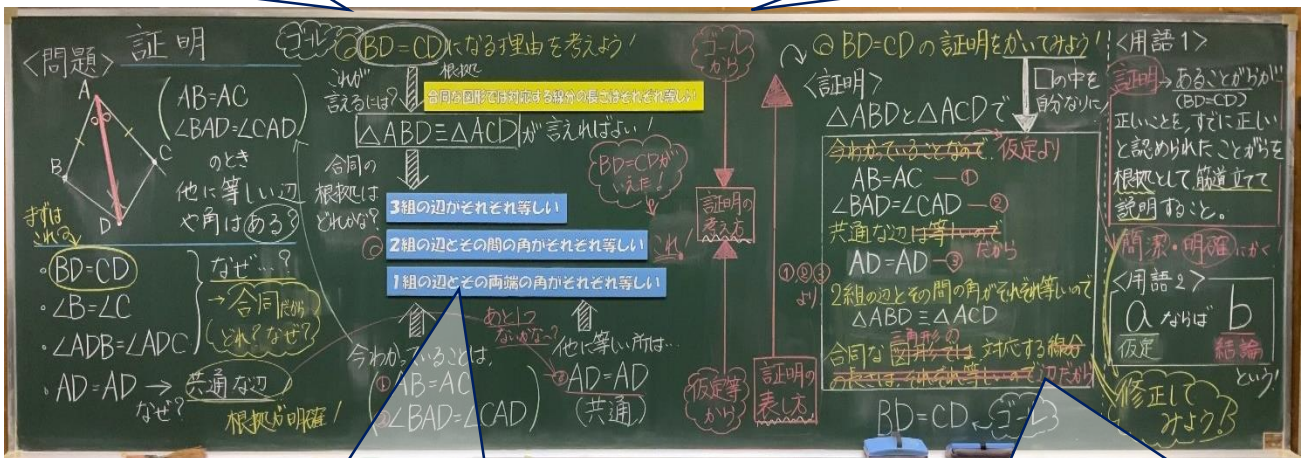 <問題> 証明
A
B
C
D
AB=AC
∠BAD=∠CAD
のとき
他に等しい辺
や角はある?
まずは
これ
BD=CD
・∠B=∠C
・∠ADB=∠ADC
・AD=AD → 共通な辺
なぜ?
なぜ…?
→合同だから
どれ?なぜ?
根拠が明確!
ゴール
◎BD=CDになる理由を考えよう!
これが
言えるには?
根拠
合同な図形では対応する線分の長さはそれぞれ等しい
△ABD≡△ACDが言えればよい!
合同の
根拠は
どれかな?
3組の辺がそれぞれ等しい
2組の辺とその間の角がそれぞれ等しい
これ!
1組の辺とその両端の角がそれぞれ等しい
BD=CDが
いえた!
今わかっていることは、
①AB=AC
②∠BAD=∠CAD
あと1つ
ないかな?
他に等しい所は…
③AD=AD
(共通)
ゴール
から
証明の
考え方
仮定等
から
証明の
表し方
◎BD=CDの証明をかいてみよう!
<証明>
□の中を
自分なりに
△ABDと△ACDで
今わかっていることなので、仮定より
AB=AC ―①
∠BAD=∠CAD ―②
共通な辺は等しいので
だから
AD=AD ―③
①,②,③
より
2組の辺とその間の角がそれぞれ等しいので
△ABD≡△ACD
三角形の
合同な図形では対応する線分
の長さは、それぞれ等しいので辺だから
BD=CD ← ゴール
<用語1>
証明→あることがらが
(BD=CD)
正しいことを、すでに正しい
と認められたことがらを
根拠として、筋道立てて
説明すること。
簡潔・明確にかく!
<用語2>
a ならば b
仮定 結論
という!
修正して
みよう!